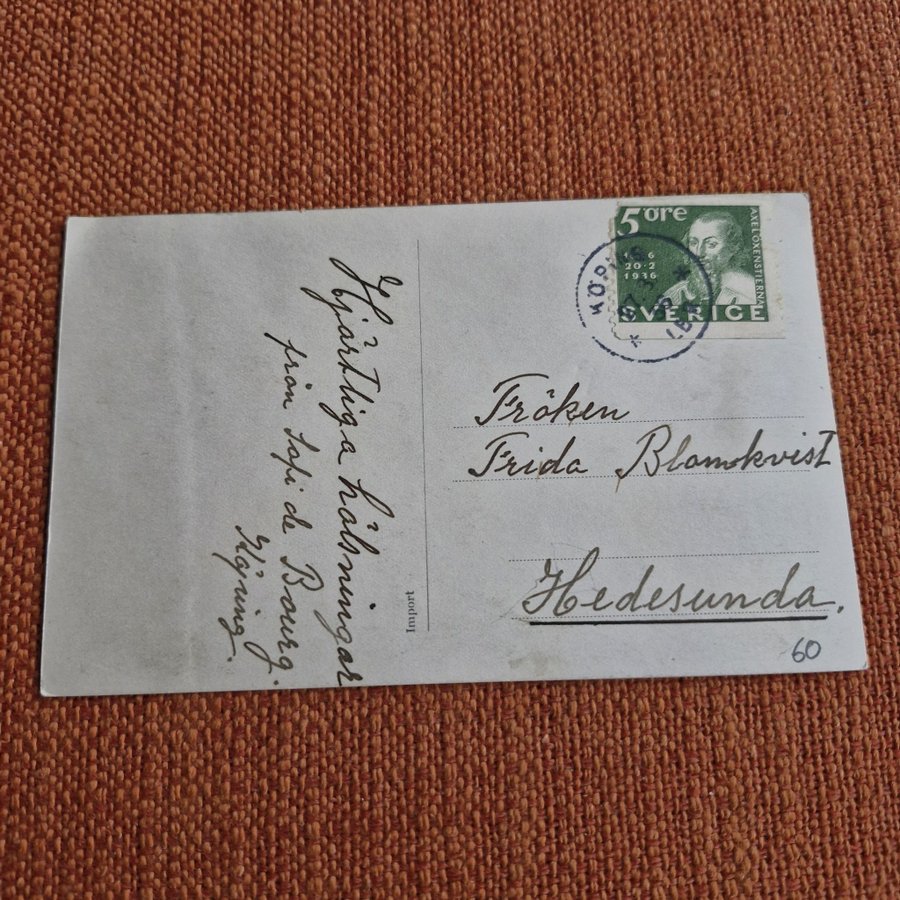 Hjärtliga hälsningar
från Sofi de Bourg.
Köping.
Import
5 öre
20-2
1936
AXEL OXENSTIERNA
SVERIGE
KÖPING
LBR
Fröken
Frida Blomkvist
Hedesunda.
60